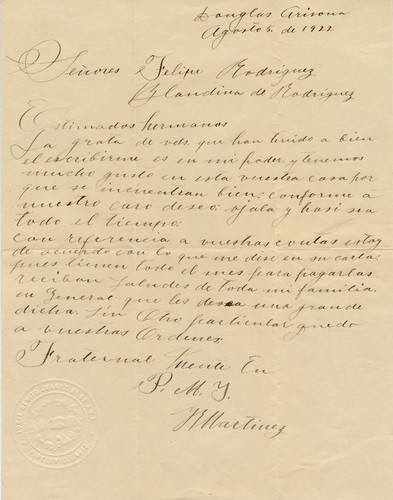 Douglas Arisona
Agosto 5. de 1922
Señores Felipe Rodriguez
Blandina de Rodriguez
Estimados hermanos
La grata de vds. que han tenido a bien
el escribirme es en mi poder y tenemos
mucho gusto en esta vuestra casa por
que se incuentran bien; conforme a
nuestro caro deseo: ojala y hasi sea
todo el tiempo:
con referencia a vuestras contas estoy
de acuerdo con lo que me dise en su carta;
pues tienen todo el mes para pagarlas
reciban Saludes de toda mi familia.
en General que les desea una grande
dicha. Sin Otro particular quedo
a vuestras Ordenes.
Fraternal mente En
P. M. Y.
Martinez